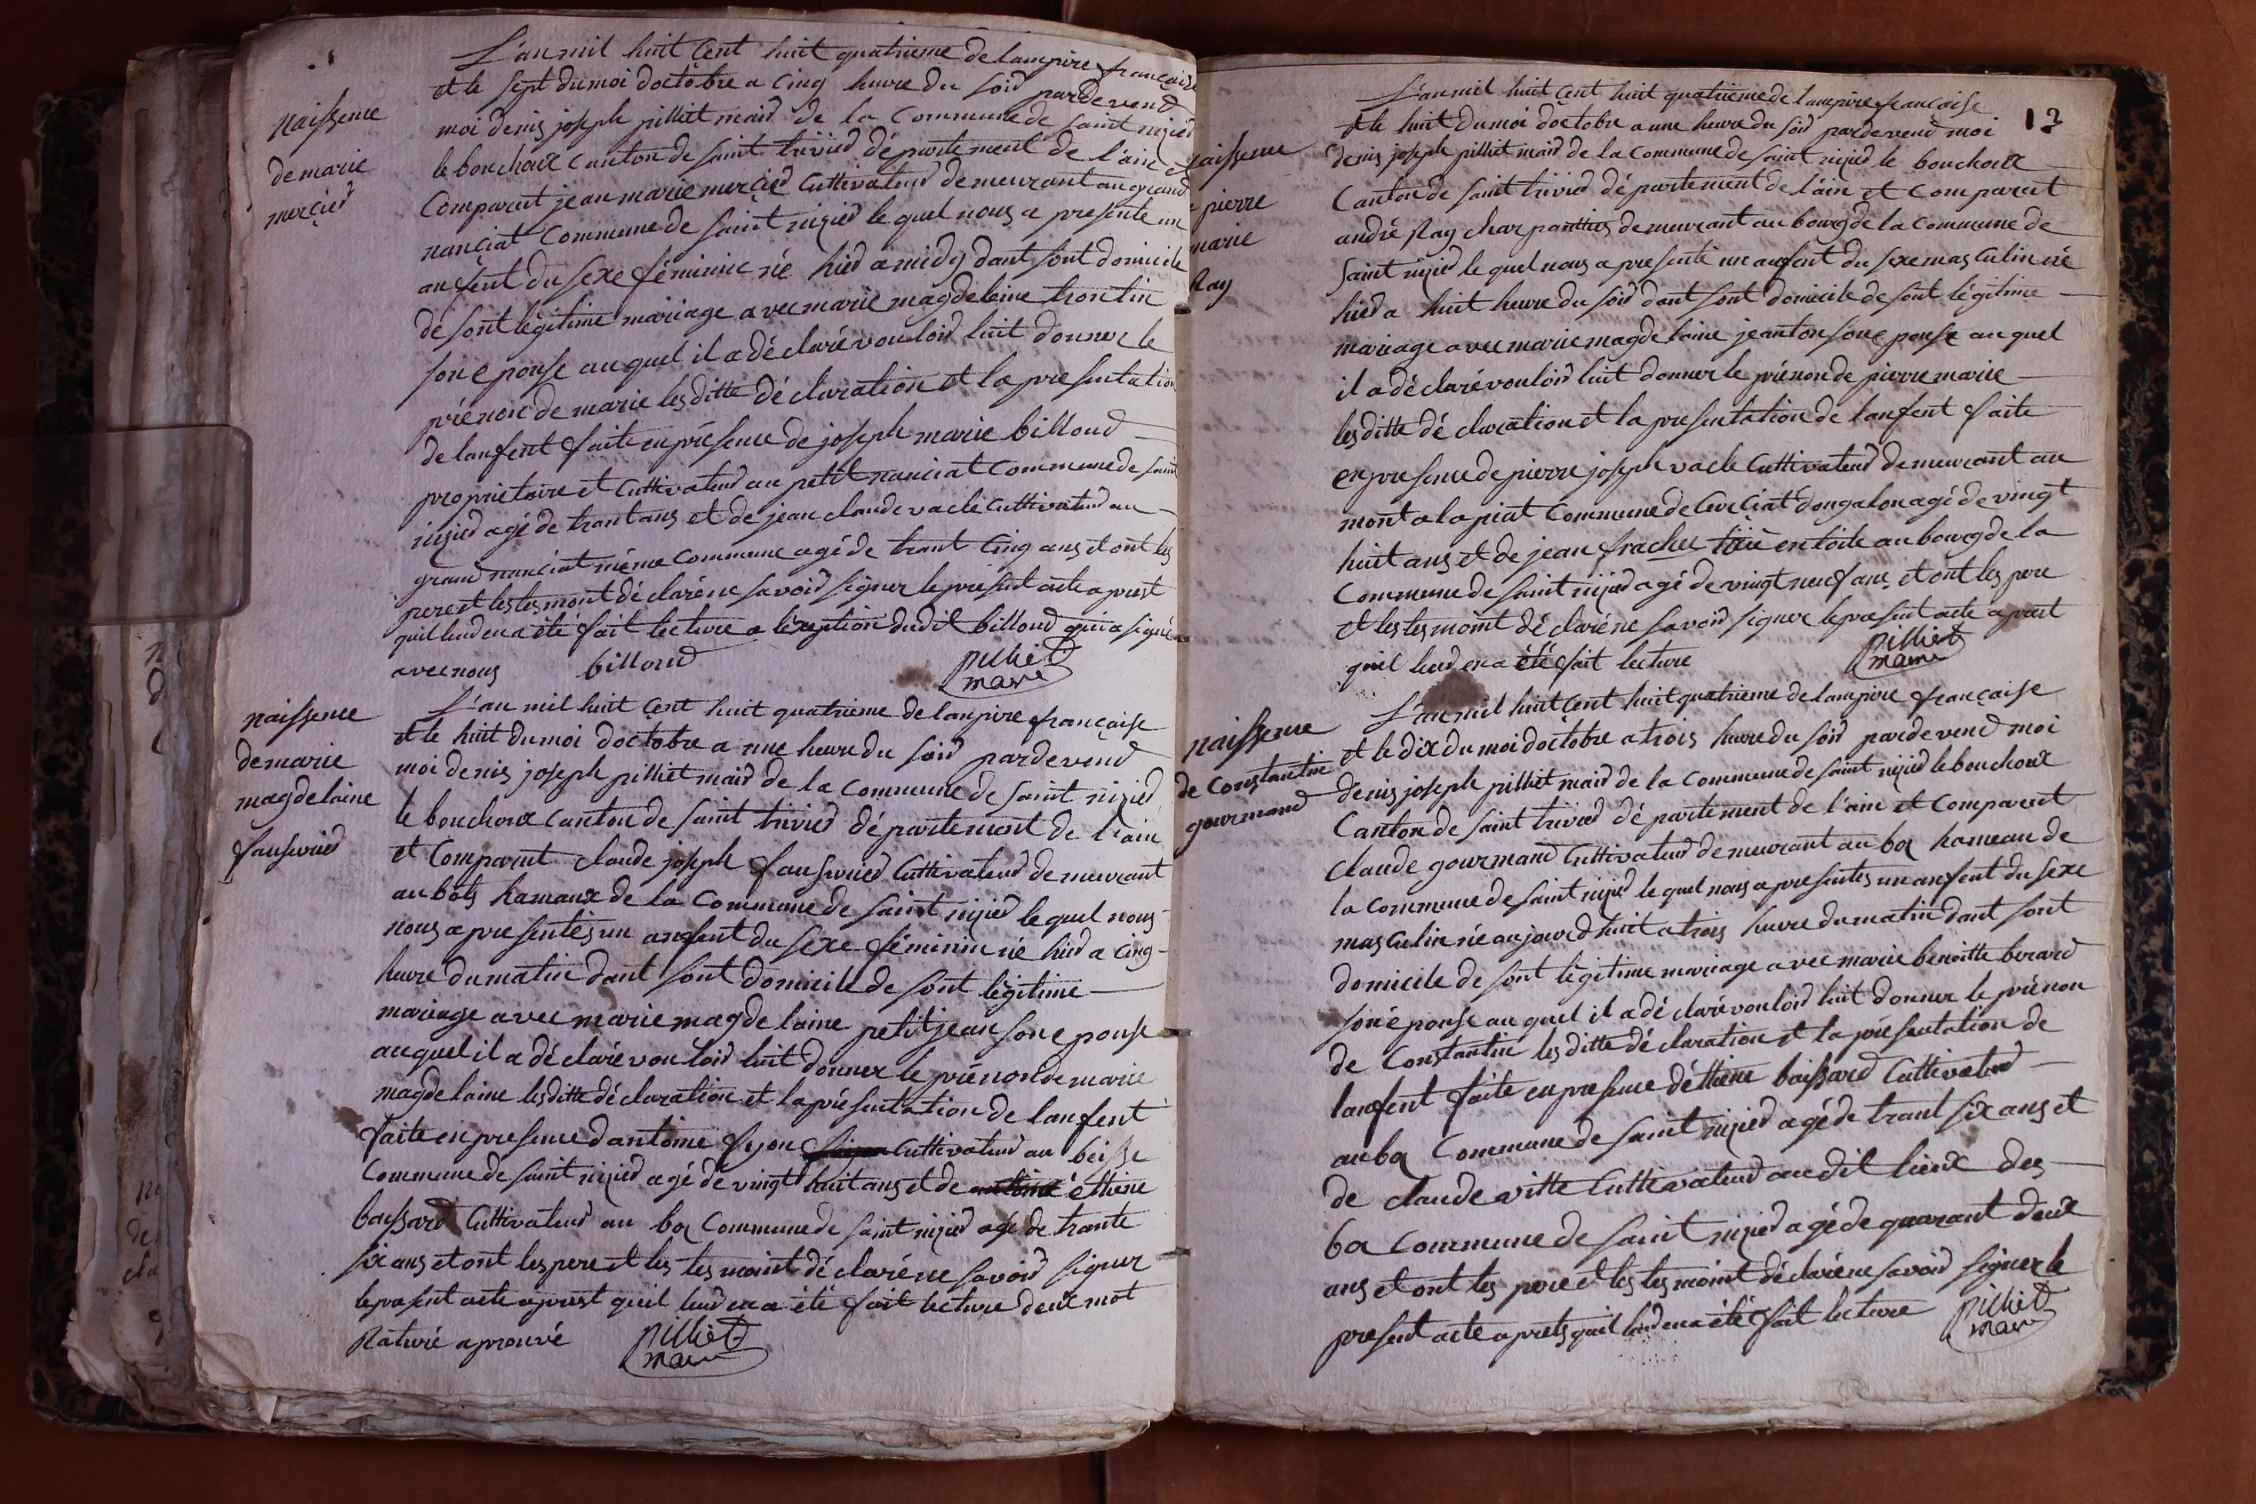 L'an mil huit cent huit quatrieme de lampire française
et le sept du moi doctobre a cinq heure du soir pardevend
naissence
moi denis joseph pilliet mair de la Commune de saint nizier
de marie
le bouchoux canton de saint trivier département de l'ain et
mercier
Comparut jean marie mercier Cultivateur demeurant au grand
nanciat Commune de saint nizier le quel nous a presente un
anfent du sexe féminin né hier a midy dant sont domicile
de sont légitime mariage avec marie magdelaine trontin
son epouse au quel il a déclaré vouloir luit donner le
prénon de marie lesditte déclaration et la presentation
de lanfent faite en présence de joseph marie billoud
proprietaire et Cultivateur au petit nanciat commune de saint
nizier agé de trant ans et de jean claude vacle Cultivateur au
grand nanciat même commune agé de trant cinq ans et ont les
pere et les tesmont déclaré ne savoir signer le présent acte aprest
quil leur en a été fait lecture a lexeption dudit billoud qui a signé
avec nous billoud pilliet
maire
naissence
de marie
magdelaine
L'an mil huit cent huit quatrieme de lanpire française
et le huit du moi doctobre a une heure du soir pardevend
moi denis joseph pilliet mair de la Commune de saint nizier
le bouchoux Canton de saint trivier département de l'ain
et Comparut claude joseph Cultivateur demeurant
au bots hamaux de la Commune de saint nizier le quel nous
nous a presentés un anfent du sexe féminin né hier a cinq
heure du matin dant sont domicile de sont légitime
mariage avec marie magdelaine petitjean son epouse
au quel il a déclaré vouloir luit donner le prénon de marie
magdelaine lesditte déclaration et la présentation de lanfent
faite en presence dantoine fyon Cultivateur au beisse
Commune de saint nizier agé de vingt huit ans et de éttiene
boissard Cultivateur au bos Commune de saint nizier agé de trante
six ans et ont les pere et les tesmoint déclaré ne savoir signer
le present acte aprest quil leur en a été fait lecture deux mot
Raturé aprouvé pilliet
maire
12
L'an mil huit cent huit quatrieme de lampire française
et le huit du moi doctobre a une heure du soir pardevend moi
naissence
denis joseph pilliet mair de la commune de saint nizier le bouchoux
pierre
Canton de saint trivier département de l'ain et comparut
marie
andré Ray charpantier demeurant au bourg de la Commune de
Ray
saint nizier le quel nous a presenté un anfent du sexe masculin né
hier a huit heure du soir dant sont domicile de sont légitime
mariage avec marie magdelaine jeanton son epouse au quel
il a déclaré vouloir luit donner le prénon de pierre marie
lesditte déclaration et la presentation de lanfent faite
en presence de pierre joseph vacle Cultivateur demeurant au
mont a la piat Commune de Curciat dongalon agé de vingt
huit ans et de jean frachet en toile au bourg de la
Commune de saint nizier agé de vingt neuf ans et ont les pere
et les tesmoint déclaré ne savoir signer le présent acte aprest
quil leur en a été fait lecture pilliet
maire
naissence
de Constantin
gourmand
L'an mil huit cent huit quatrieme de lampire française
et le dix du moi doctobre a trois heure du soir pardevend moi
denis joseph pilliet mair de la commune de saint nizier le bouchoux
Canton de saint trivier département de l'ain et Comparut
claude gourmand Cultivateur demeurant au bos hameau de
la commune de saint nizier le quel nous a presentés un anfent du sexe
masculin né aujourdhuit a trois heure du matin dant sont
domicile de sont légitime mariage avec marie benoitte berard
son épouse au quel il a déclaré vouloir luit donner le prénon
de Constantin lesditte déclaration et la présentation de
lanfent faite en presence déttiene boissard Cultivateur
au bos Commune de saint nizier agé de trant six ans et
de claude vitte Cultivateur audit lieux des
bos commune de saint nizier agé de quarant deux
ans et ont les pere et les tesmoint déclaré ne savoir signer le
present acte aprets quil leur en a été fait lecture pilliet
maire